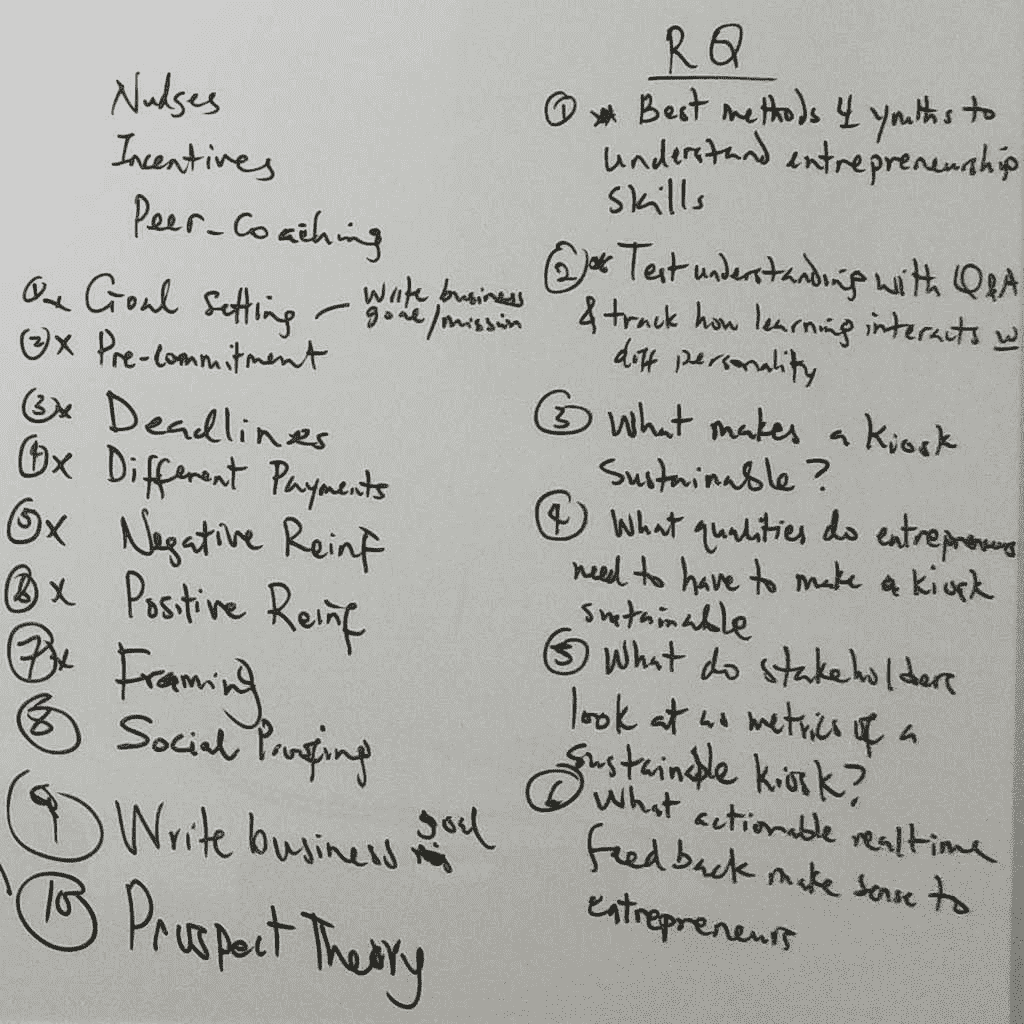 Nudges
Incentives
Peer-Coaching
① x Goal Setting – write business
goal/mission
② x Pre-commitment
③ x Deadlines
④ x Different Payments
⑤ x Negative Reinf
⑥ x Positive Reinf
⑦ x Framing
⑧ Social Proofing
⑨ Write business goal
⑩ Prospect Theory
RQ
① * Best methods 4 youths to
understand entrepreneurship
skills
② * Test understanding with Q&A
& track how learning interacts w
diff personality
③ What makes a kiosk
sustainable?
④ What qualities do entrepreneurs
need to have to make a kiosk
sustainable
⑤ What do stakeholders
look at as metrics of a
sustainable kiosk?
⑥ What actionable realtime
feedback make sense to
entrepreneurs